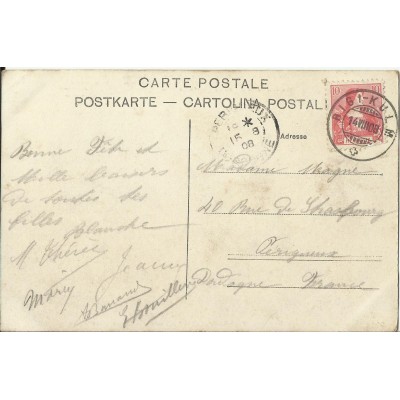 CARTE POSTALE
POSTKARTE — CARTOLINA POSTALE
Adresse
10
RIGI-KULM
14.VIII.08
HELVETIA
15 08
Bonne Fête et
Mille baisers
de toutes tes
filles
Blanche
M. Thérèse
Jeanne
Marie
Madame Magne
40 Rue de Strasbourg
Périgueux
Dordogne France